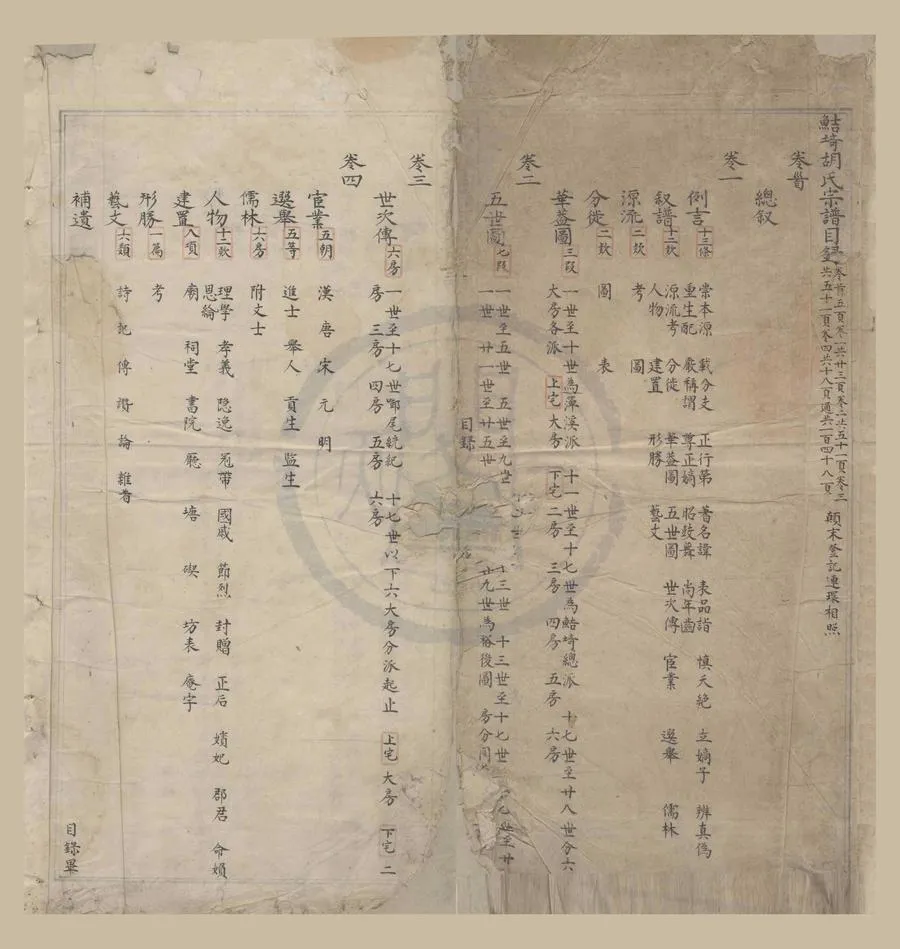 鮚埼胡氏宗譜目錄 卷首五頁卷一共廿三頁卷二共五十一頁卷三
共五十一頁卷四共十八頁通共一百四十八頁 顛末登記連環相照
卷首
總叙
卷一
例言 十三條 崇本源 載分支 正行第 著名諱 表品詣 慎夭絕 立嫡子 辨真偽
重生配 嚴稱謂 尊正嫡 昭 尚年齒
叙譜 十二款 源流考 分徙 華蓋圖 五世圖 世次傳 宦業 選舉 儒林
人物 建置 形勝 藝文
源流 二款 考 圖
分徙 二款 圖 表
卷二
華蓋圖 三段 一世至十世為蓴溪派 十一世至十七世為鮚埼總派 十七世至廿八世分六
大房各派 上宅 大房 下宅 二房 三房 四房 五房 六房
五世圖 七段 一世至五世 五世至九世 十三世 十三世至十七世 世至廿
一世 廿一世至廿五世 廿九世為裕後圖 房分同
目錄
卷三
世次傳 六房 一世至十七世鄞尾統紀 十七世以下六大房分派起止 上宅 大房 下宅 二
房 三房 四房 五房 六房
卷四
宦業 五朝 漢 唐 宋 元 明
選舉 五等 進士 舉人 貢生 監生
儒林 六房 附文士
人物 十二款 理學 孝義 隐逸 冠帶 國戚 節烈 封贈 正后 嬪妃 郡君 命婦
恩綸
建置 八項 廟 祠堂 書院 廳 塘 碶 坊表 庵宇
形勝 一篇 考
藝文 六類 詩 記 傳 讚 論 雜著
補遺
目錄畢